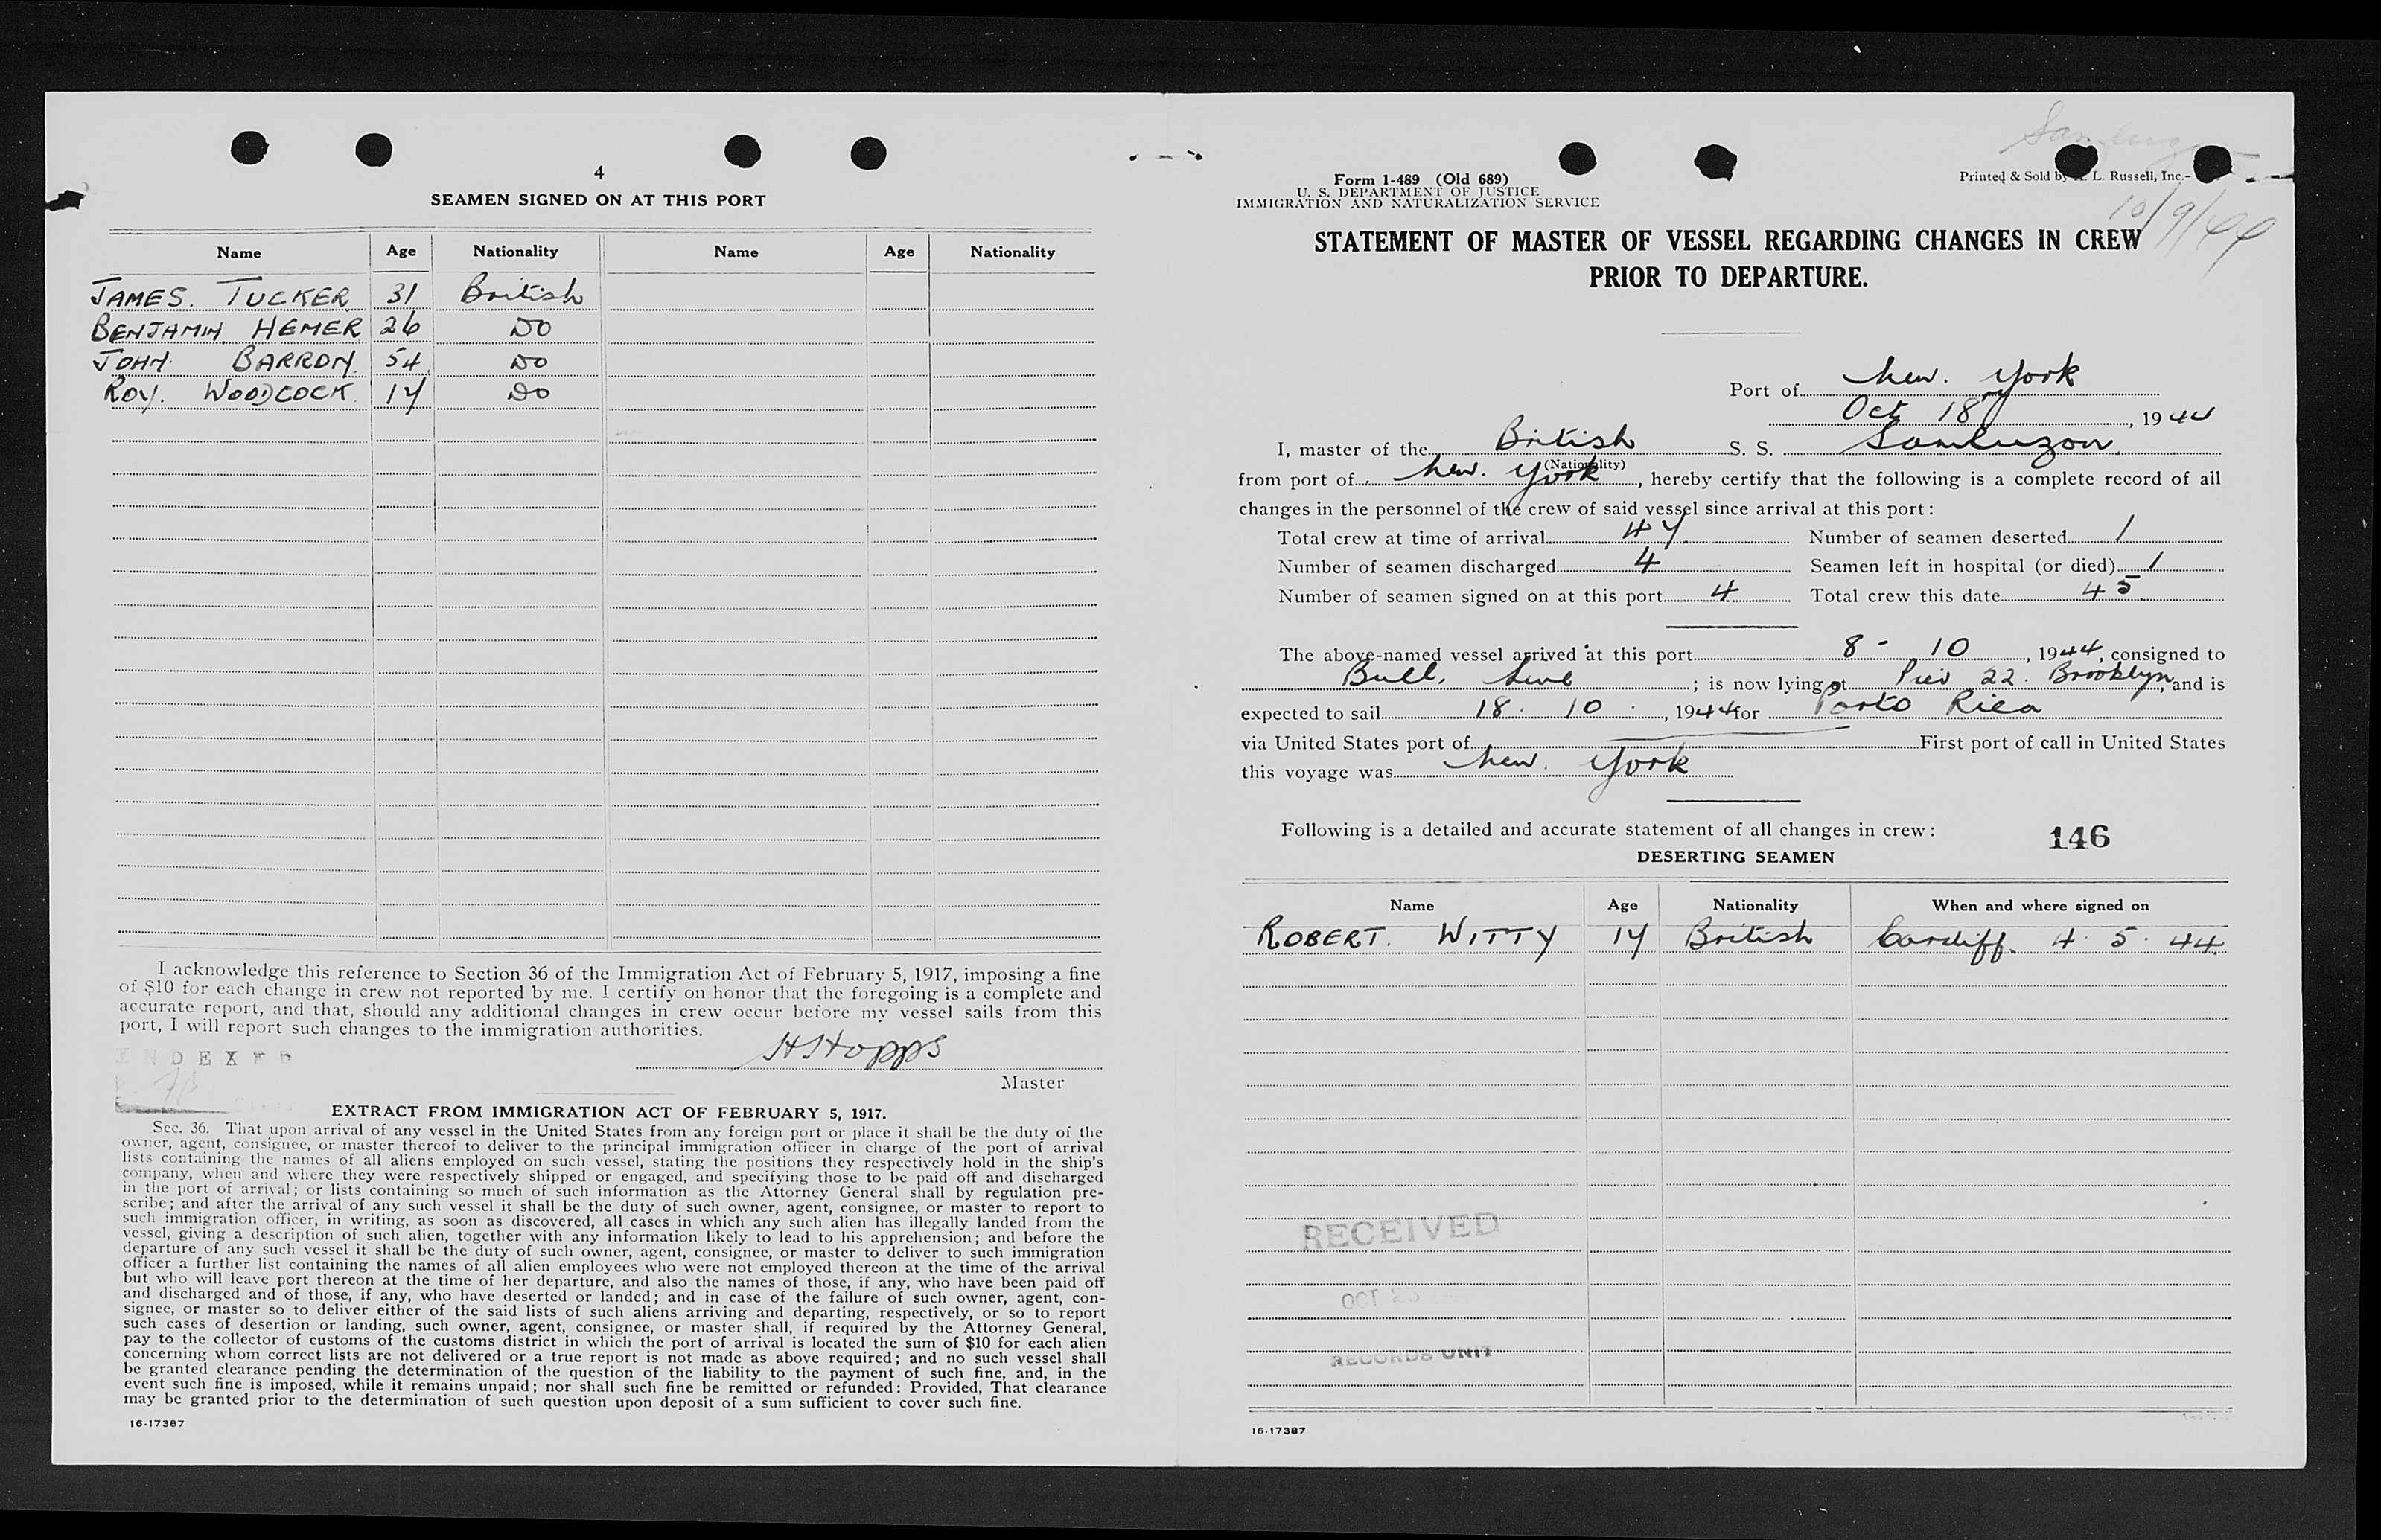 4
SEAMEN SIGNED ON AT THIS PORT
Name Age Nationality Name Age Nationality
JAMES. TUCKER 31 British
BENJAMIN HEMER 26 DO
JOHN. BARRON. 54 DO
ROY. WOODCOCK. 17 DO
I acknowledge this reference to Section 36 of the Immigration Act of February 5, 1917, imposing a fine
of $10 for each change in crew not reported by me. I certify on honor that the foregoing is a complete and
accurate report, and that, should any additional changes in crew occur before my vessel sails from this
port, I will report such changes to the immigration authorities.
INDEXED
HHopps
Master
EXTRACT FROM IMMIGRATION ACT OF FEBRUARY 5, 1917.
Sec. 36. That upon arrival of any vessel in the United States from any foreign port or place it shall be the duty of the
owner, agent, consignee, or master thereof to deliver to the principal immigration officer in charge of the port of arrival
lists containing the names of all aliens employed on such vessel, stating the positions they respectively hold in the ship's
company, when and where they were respectively shipped or engaged, and specifying those to be paid off and discharged
in the port of arrival; or lists containing so much of such information as the Attorney General shall by regulation pre-
scribe; and after the arrival of any such vessel it shall be the duty of such owner, agent, consignee, or master to report to
such immigration officer, in writing, as soon as discovered, all cases in which any such alien has illegally landed from the
vessel, giving a description of such alien, together with any information likely to lead to his apprehension; and before the
departure of any such vessel it shall be the duty of such owner, agent, consignee, or master to deliver to such immigration
officer a further list containing the names of all alien employees who were not employed thereon at the time of the arrival
but who will leave port thereon at the time of her departure, and also the names of those, if any, who have been paid off
and discharged and of those, if any, who have deserted or landed; and in case of the failure of such owner, agent, con-
signee, or master so to deliver either of the said lists of such aliens arriving and departing, respectively, or so to report
such cases of desertion or landing, such owner, agent, consignee, or master shall, if required by the Attorney General,
pay to the collector of customs of the customs district in which the port of arrival is located the sum of $10 for each alien
concerning whom correct lists are not delivered or a true report is not made as above required; and no such vessel shall
be granted clearance pending the determination of the question of the liability to the payment of such fine, and, in the
event such fine is imposed, while it remains unpaid; nor shall such fine be remitted or refunded: Provided, That clearance
may be granted prior to the determination of such question upon deposit of a sum sufficient to cover such fine.
16-17387
Samluzon
Form 1-489 (Old 689)
U. S. DEPARTMENT OF JUSTICE
IMMIGRATION AND NATURALIZATION SERVICE
Printed & Sold by L. Russell, Inc.-
10/9/44
STATEMENT OF MASTER OF VESSEL REGARDING CHANGES IN CREW
PRIOR TO DEPARTURE.
Port of New. York
Oct 18, 1944
I, master of the British S. S. Samluzon.
(Nationality)
from port of New. York, hereby certify that the following is a complete record of all
changes in the personnel of the crew of said vessel since arrival at this port:
Total crew at time of arrival 47. Number of seamen deserted 1
Number of seamen discharged 4 Seamen left in hospital (or died) 1
Number of seamen signed on at this port 4 Total crew this date 45.
The above-named vessel arrived at this port 8 - 10, 1944, consigned to
Bull. Line; is now lying at Pier 22. Brooklyn, and is
expected to sail 18. 10., 1944 for Porto Rica
via United States port of First port of call in United States
this voyage was New. York
Following is a detailed and accurate statement of all changes in crew: 146
DESERTING SEAMEN
Name Age Nationality When and where signed on
ROBERT. WITTY 17 British Cardiff. 4. 5. 44.
RECEIVED
OCT 23
RECORDS UNIT
16-17387